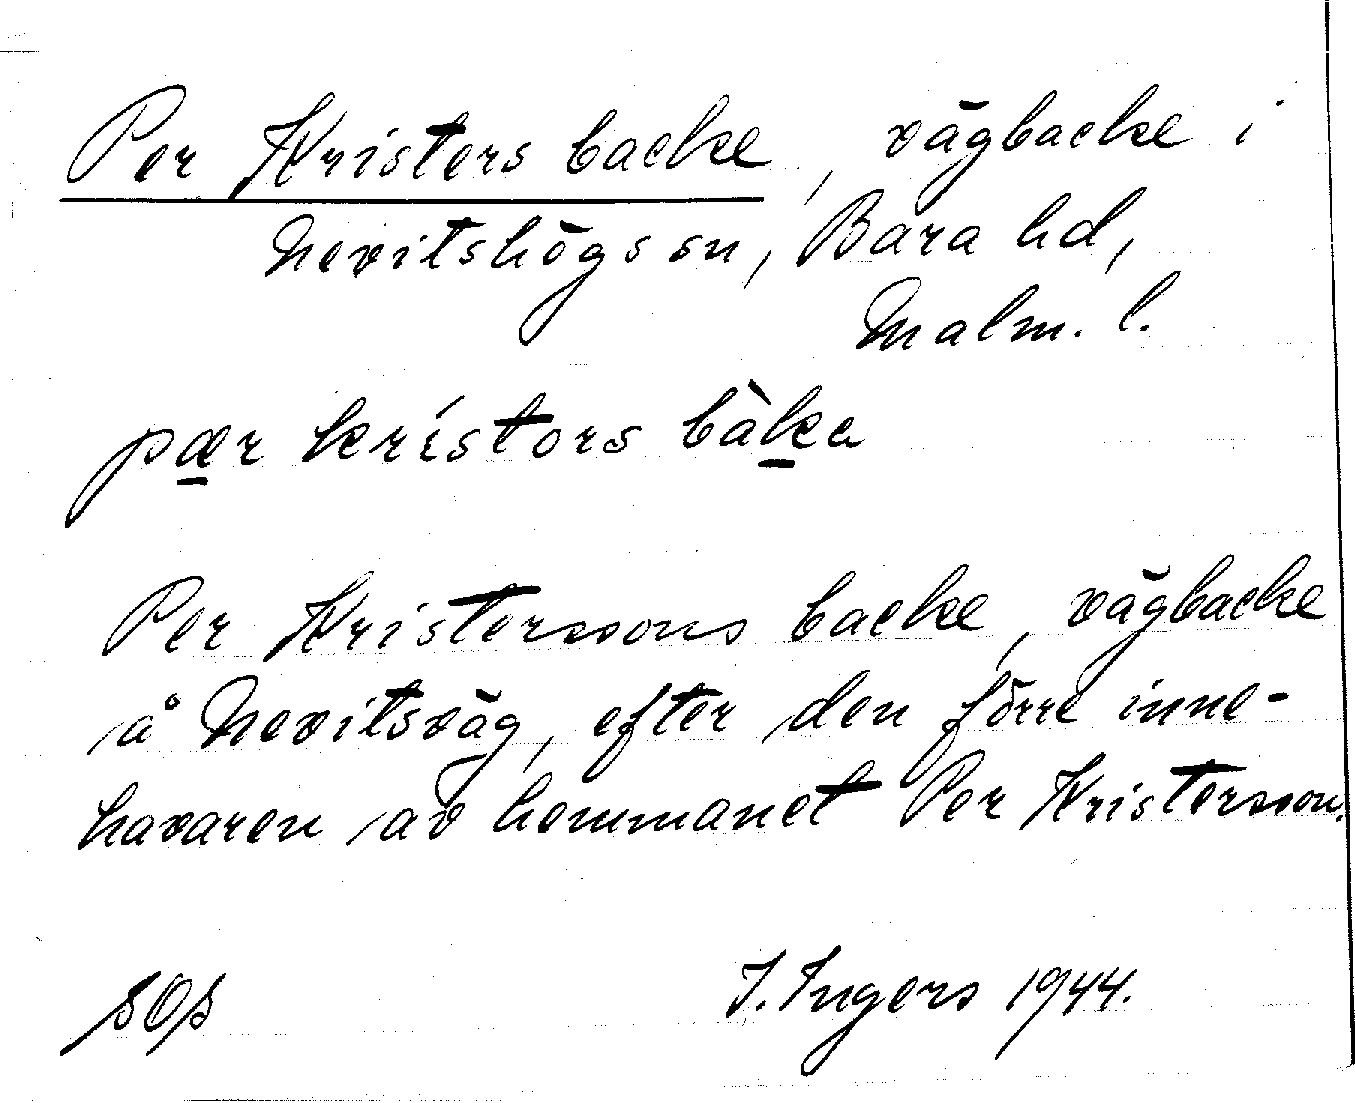 Per Kristers backe, vägbacke i
Nevitshögs sn, Bara hd,
Malm. l.
pær krístors bàka
Per Kristerssons backe, vägbacke
å Nevitsväg, efter den förre inne-
havaren av hemmanet Per Kristersson.
I. Ingers 1944.